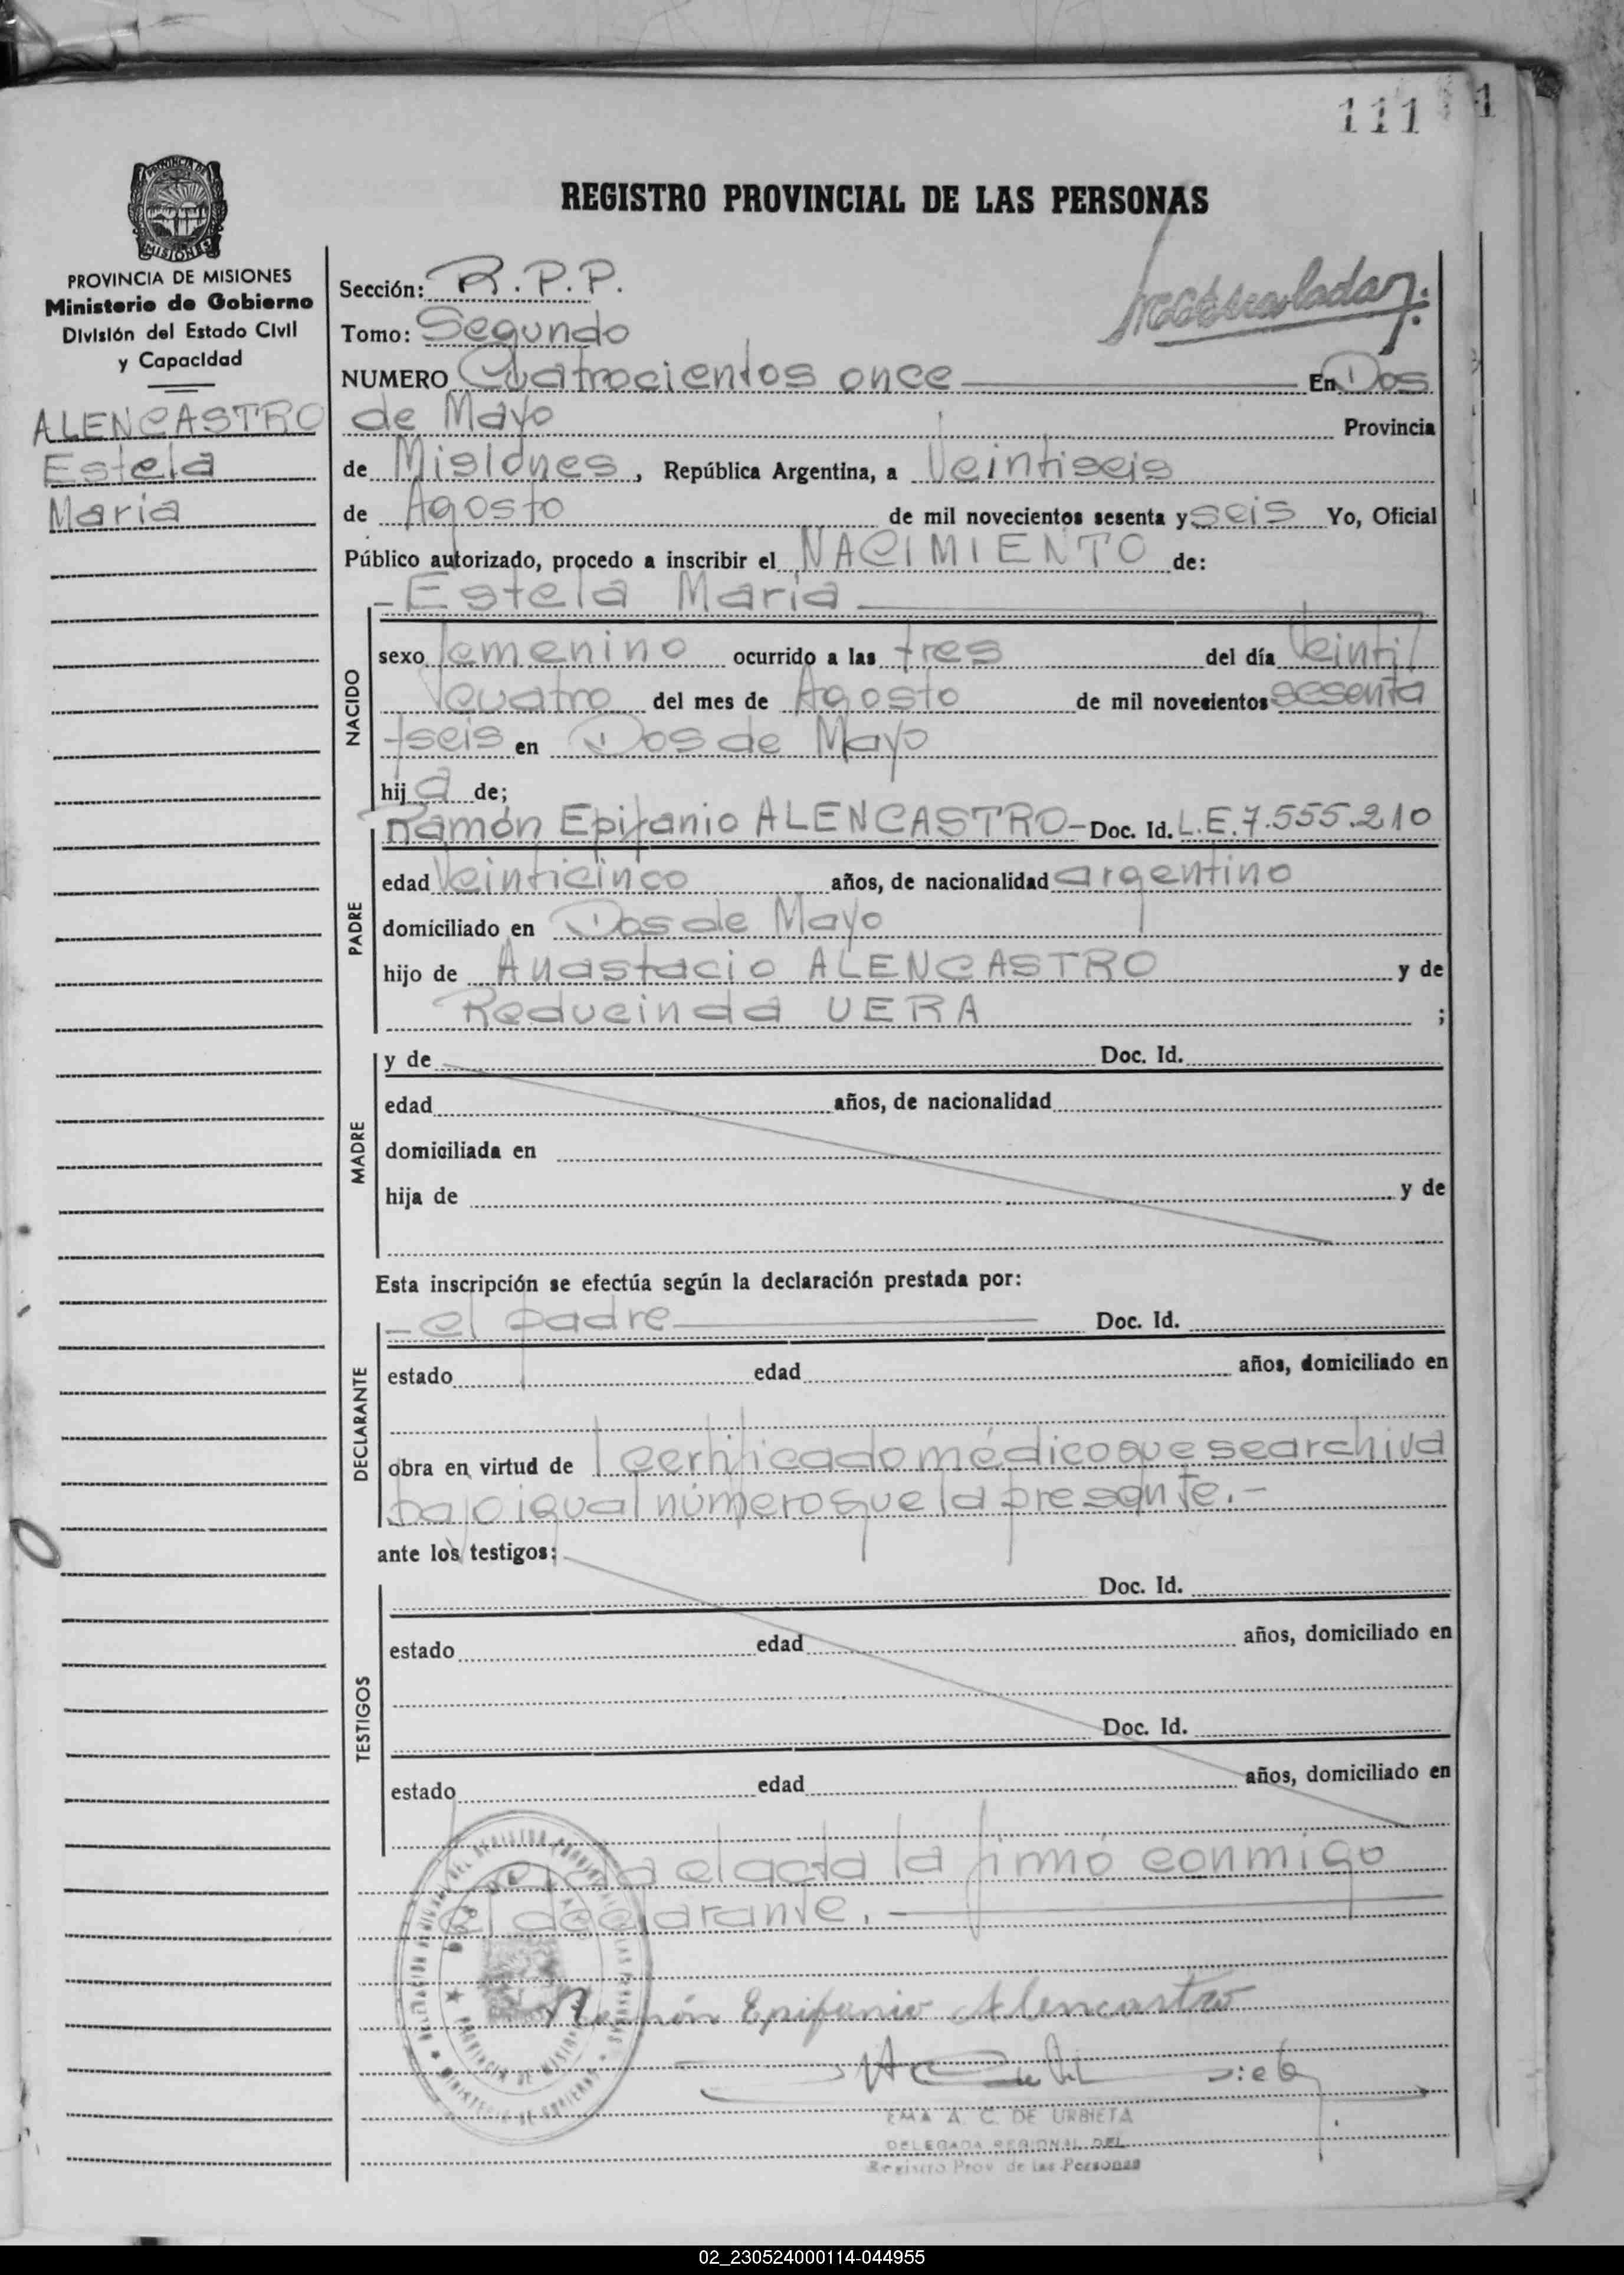 111
1
REGISTRO PROVINCIAL DE LAS PERSONAS
PROVINCIA DE MISIONES
Ministerio de Gobierno
División del Estado Civil
y Capacidad
ALENCASTRO
Estela
Maria
Sección: R.P.P.
Tomo: Segundo
NUMERO Cuatrocientos once En Dos
de Mayo Provincia
de Misiones, República Argentina, a Veintiseis
de Agosto de mil novecientos sesenta y seis Yo, Oficial
Público autorizado, procedo a inscribir el NACIMIENTO de:
- Estela Maria
NACIDO
sexo femenino ocurrido a las tres del día Veinti
cuatro del mes de Agosto de mil novecientos sesenta
yseis en Dos de Mayo
hija de;
PADRE
Ramón Epifanio ALENCASTRO- Doc. Id. L.E.7.555.210
edad Veinticinco años, de nacionalidad argentino
domiciliado en Dos de Mayo
hijo de Anastacio ALENCASTRO y de
Reducinda VERA ;
MADRE
y de Doc. Id.
edad años, de nacionalidad
domiciliada en
hija de y de
Esta inscripción se efectúa según la declaración prestada por:
DECLARANTE
- el padre Doc. Id.
estado edad años, domiciliado en
obra en virtud de certificado médico que se archiva
bajo igual número que la presente.-
ante los testigos:
TESTIGOS
Doc. Id.
estado edad años, domiciliado en
Doc. Id.
estado edad años, domiciliado en
el acta la firmó conmigo
el declarante.
Ramón Epifanio Alencastro
EMA A. C. DE URBIETA
DELEGADA REGIONAL DEL
Registro Prov. de las Personas
02_230524000114-044955